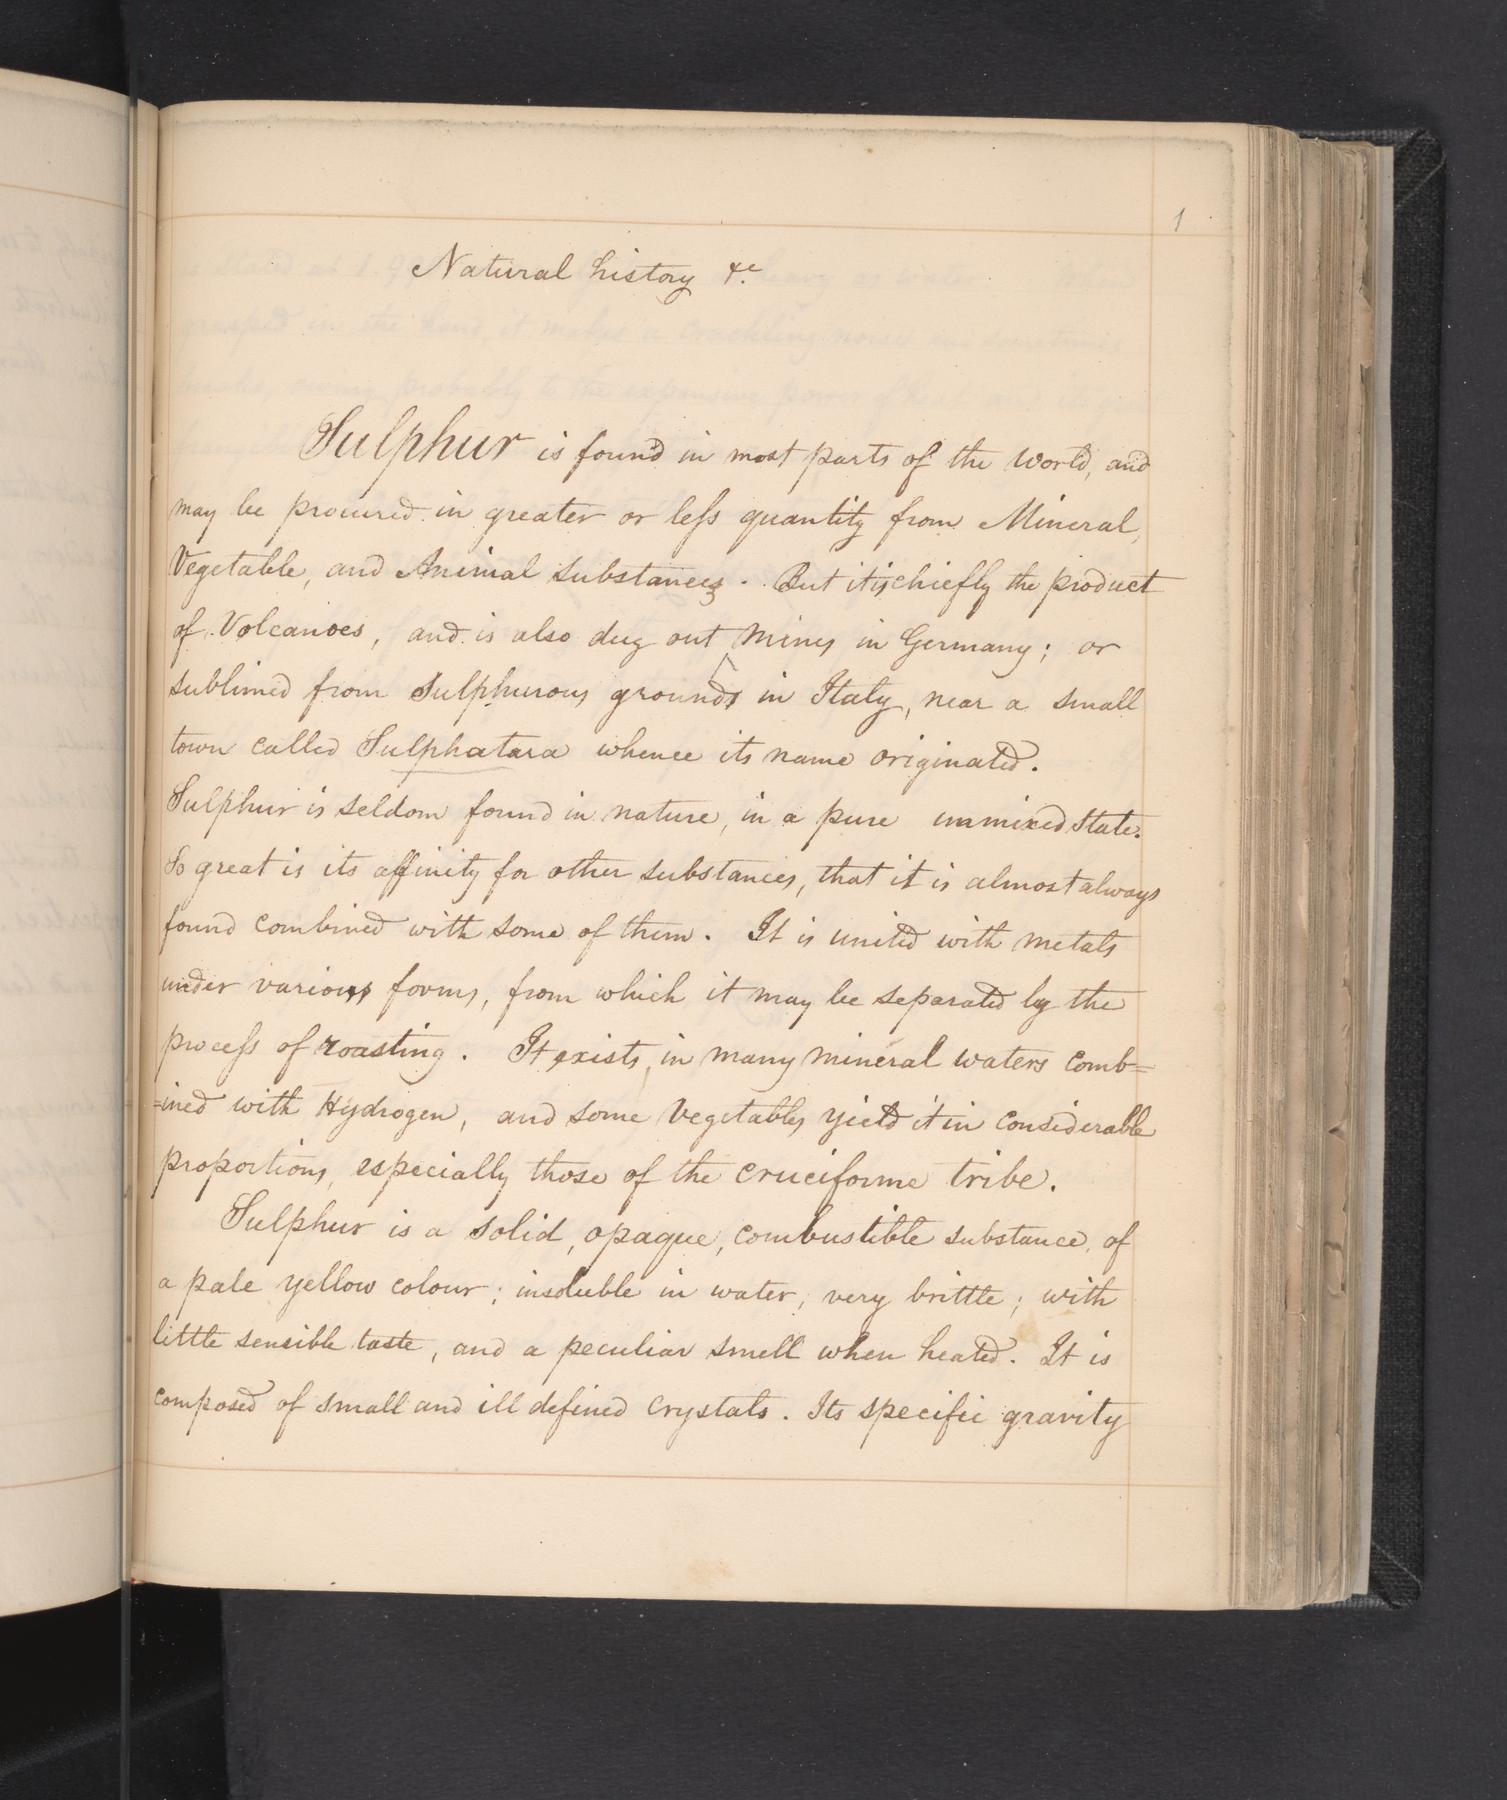 1
Natural history &c.
Sulphur is found in most parts of the World, and
may be procured in greater or less quantity from Mineral,
Vegetable, and Animal substances. But it is chiefly the product
of Volcanoes, and is also dug out Mines in Germany; or
sublimed from Sulphurous grounds in Italy, near a small
town called Sulphatara whence its name originated.
Sulphur is seldom found in nature, in a pure unmixed State.
So great is its affinity for other substances, that it is almost always
found combined with some of them. It is united with metals
under various forms, from which it may be separated by the
process of roasting. It exists, in many mineral waters comb=
=ined with Hydrogen, and some Vegetables yield it in considerable
proportions, especially those of the cruciforme tribe.
Sulphur is a solid, opaque, combustible substance, of
a pale yellow colour; insoluble in water, very brittle; with
little sensible taste, and a peculiar smell when heated. It is
composed of small and ill defined crystals. Its specific gravity